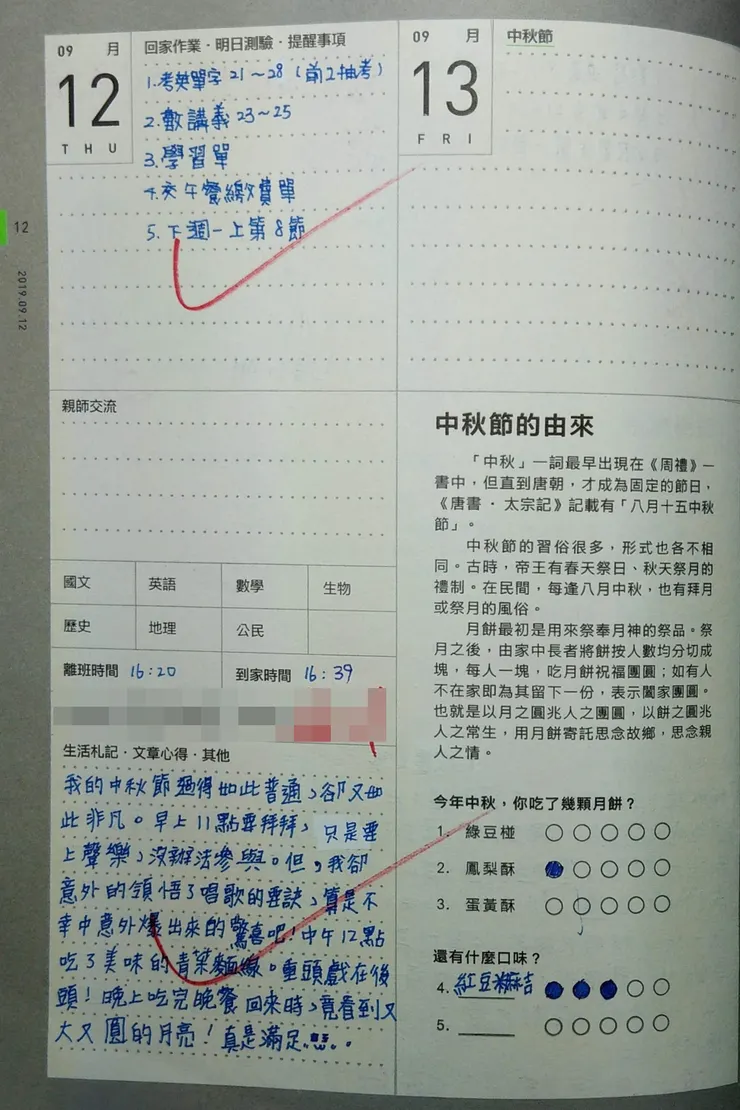 09 月
12
THU
回家作業・明日測驗・提醒事項
1.考英單字 21～28 (前2抽考)
2.數講義 23～25
3.學習單
4.交午餐繳費單
5.下週一上第8節
12
2019.09.12
親師交流
國文 英語 數學 生物
歷史 地理 公民
離班時間 16:20 到家時間 16:39
生活札記・文章心得・其他
我的中秋節過得如此普通、卻又如
此非凡。早上11點要拜拜、只是要
上聲樂、沒辦法參與。但，我卻
意外的領悟了唱歌的要訣、算是不
幸中意外爆出來的驚喜吧！中午12點
吃了美味的青菜麵線。重頭戲在後
頭！晚上吃完晚餐回來時、竟看到又
大又圓的月亮！真是滿足
09 月
13
FRI
中秋節
中秋節的由來
「中秋」一詞最早出現在《周禮》一
書中，但直到唐朝，才成為固定的節日，
《唐書・太宗記》記載有「八月十五中秋
節」。
中秋節的習俗很多，形式也各不相
同。古時，帝王有春天祭日、秋天祭月的
禮制。在民間，每逢八月中秋，也有拜月
或祭月的風俗。
月餅最初是用來祭奉月神的祭品。祭
月之後，由家中長者將餅按人數均分切成
塊，每人一塊，吃月餅祝福團圓；如有人
不在家即為其留下一份，表示闔家團圓。
也就是以月之圓兆人之團圓，以餅之圓兆
人之常生，用月餅寄託思念故鄉，思念親
人之情。
今年中秋，你吃了幾顆月餅？
1. 綠豆椪
2. 鳳梨酥
3. 蛋黃酥
還有什麼口味？
4. 紅豆麻吉
5.